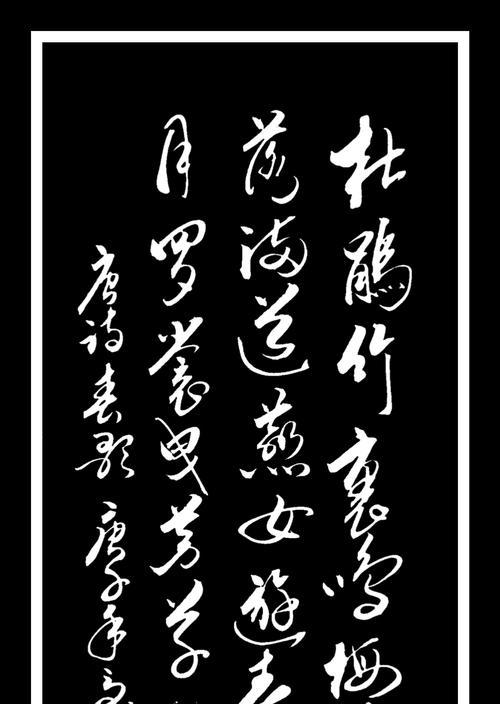 杜鹃竹裏鸣梅
落满道燕女遊春
月罗裳曳芳草
唐诗春歌 庚子年